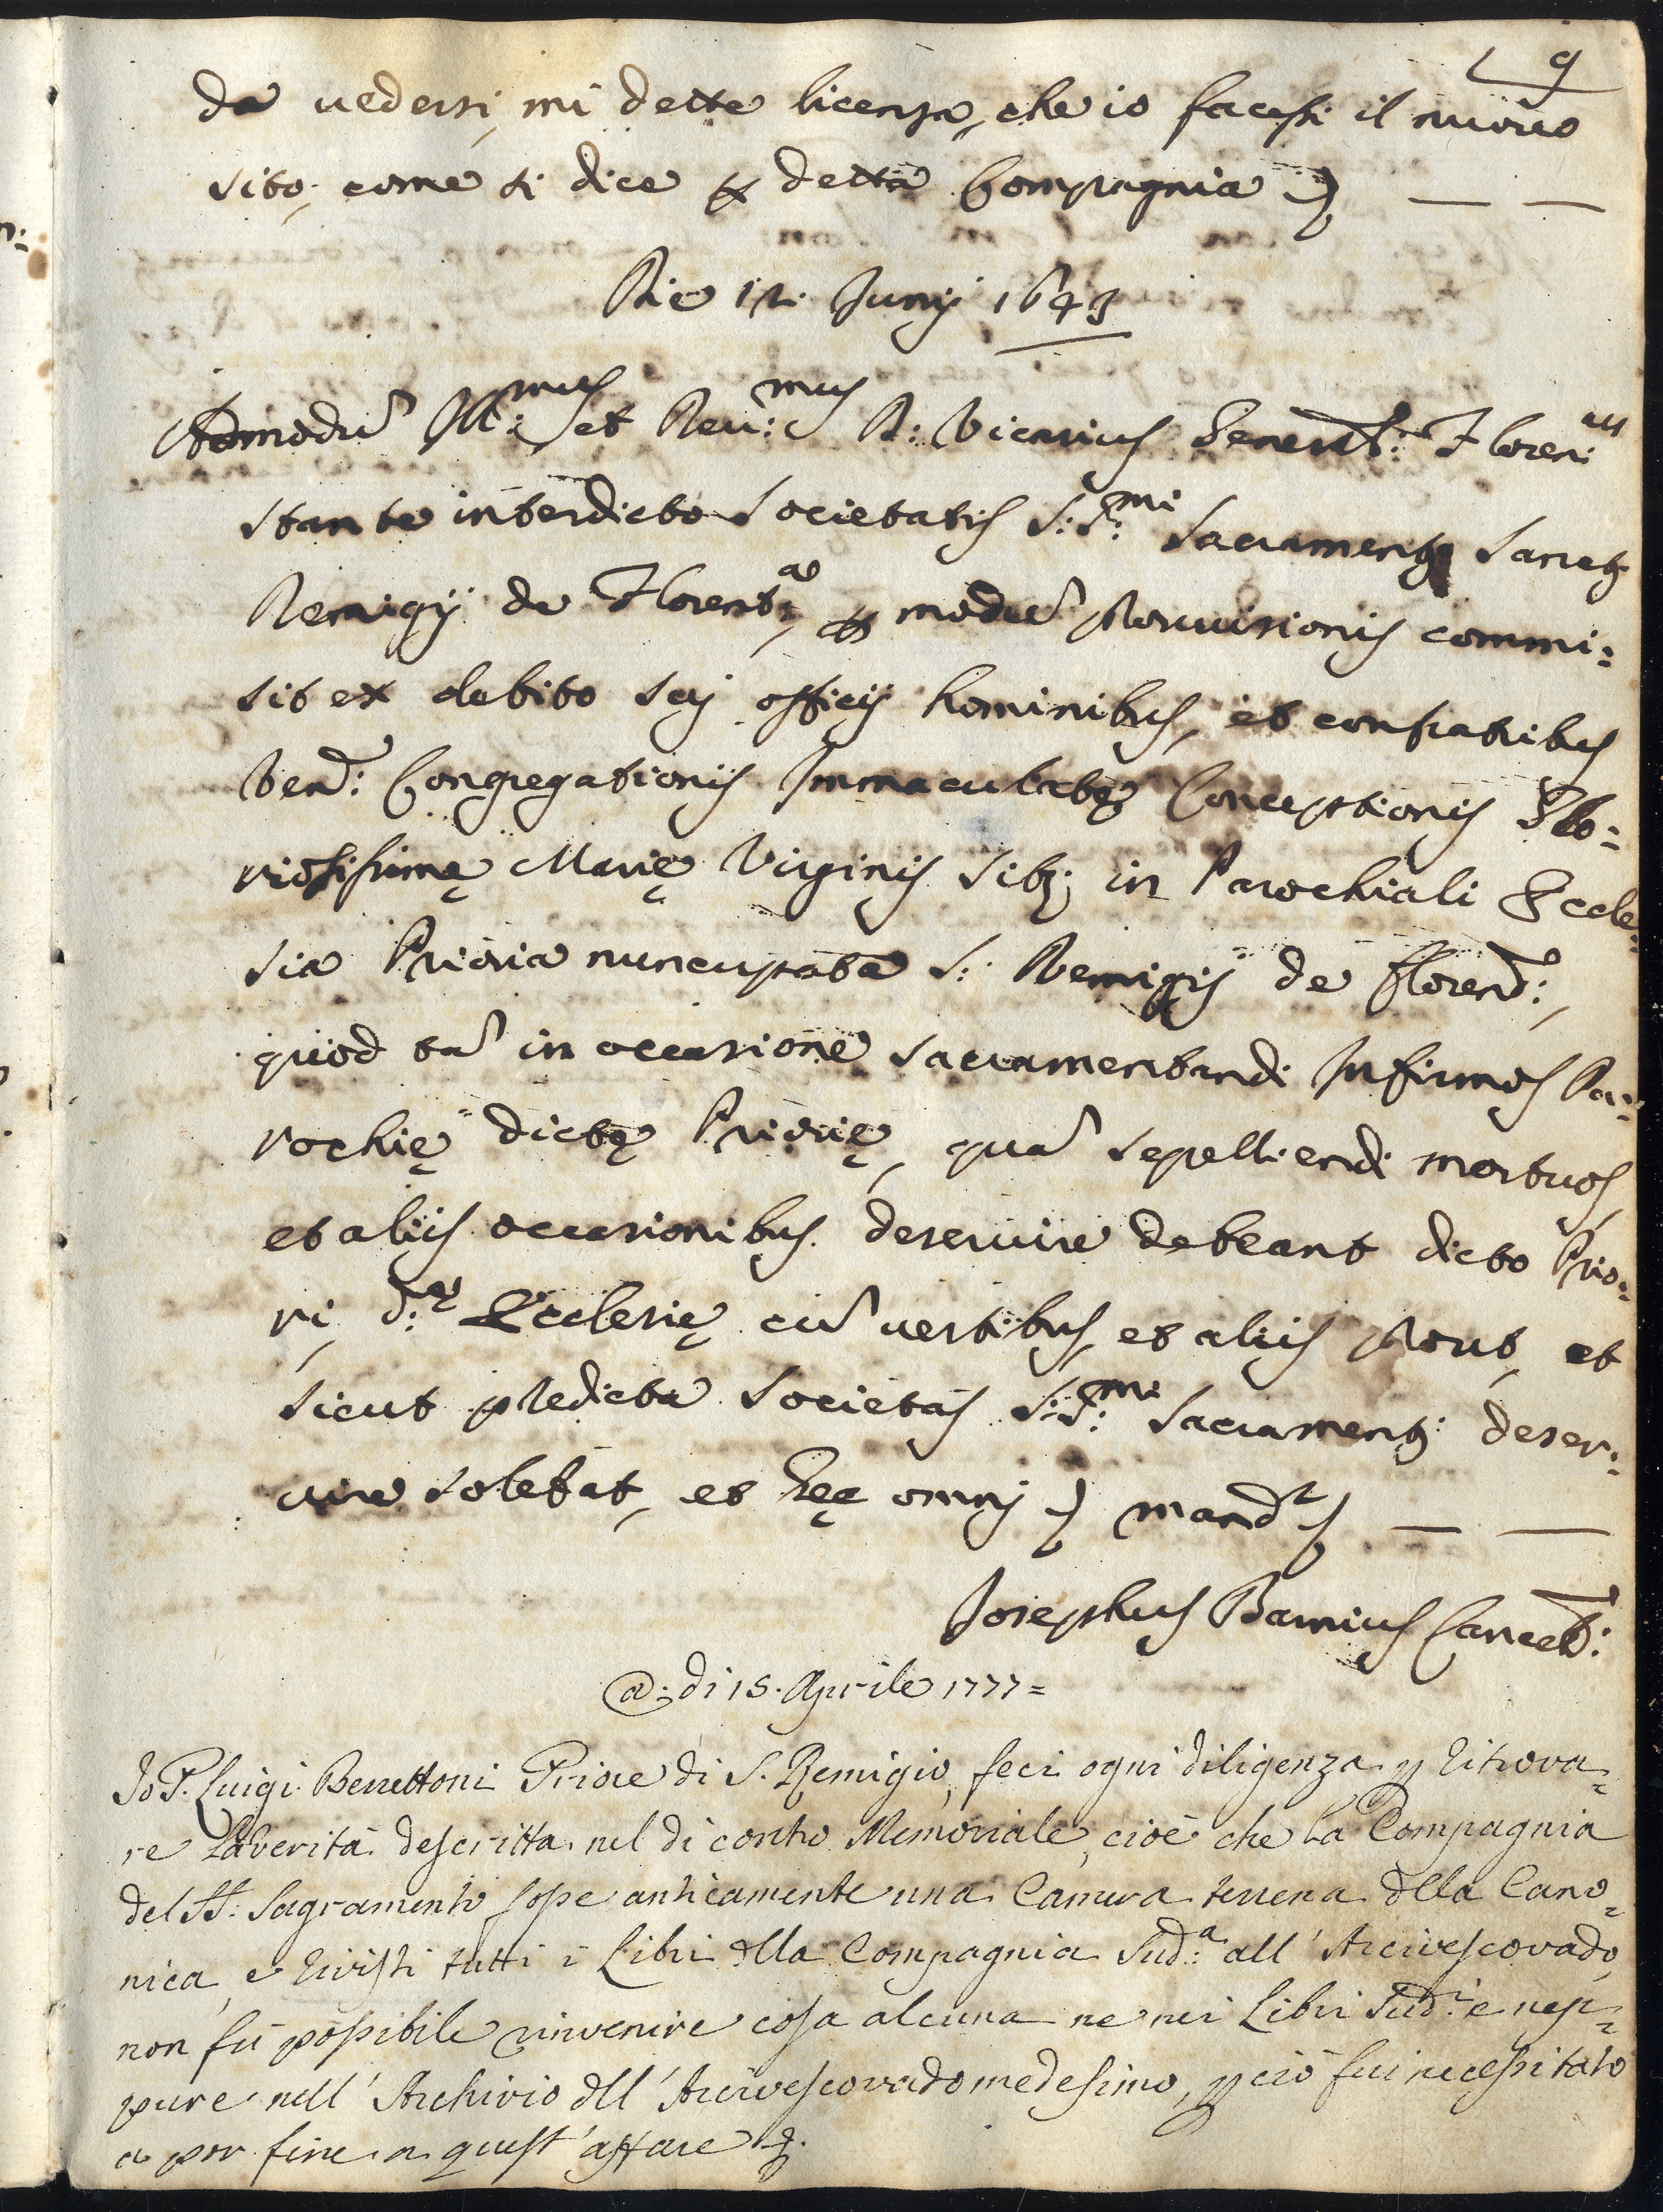 9
da uedersi, mi dette licenza, che io facessi il nuouo
sito, come si dice p detta Compagnia
Die 12. Junij 1643
Admodũ Ill:mus et Reu:mus D: Vicarius Generał: Floren:us
stante interdicto societatis S:S:mi Sacramenti Sancti
Remigij de Florent:a, p modũ prouuisionis commi:
sit ex debito sui officij hominibus, et confratribus
Ven: Congregationis Immaculatę Conceptionis Glo:
riosissimę Marię Virginis sitę in Parochiali Eccle:
sia Prioria nuncupata S: Remigij de Floren:,
quod tã in occasione sacramentandi Infirmos Pa:
rochię dictę Priorię, quã sepelliendi mortuos,
et alijs occasionibus deseruire debeant dicto Prio:
ri, d:ę Ecclesię cũ uestibus, et alijs prout, et
sicut predicta societas S:S:mi Sacramenti deser:
uire solebat, et hęc omni mand
Josephus Barnius Cancel:
@: di 15. Aprile 1777=
Io P. Luigi Berrettoni Priore di S. Remigio, feci ogni diligenza p ritrova=
re la verità descritta nel di contro Memoriale, cioè che la Compagnia
del SS: Sagramento fosse anticamente una Camera terrena dlla Cano=
nica, e rivisti tutti i Libri dlla Compagnia Sud:a all' Arcivescovado,
non fù possibile rinvenire cosa alcuna ne nei Libri Sud:i e nep=
pure nell' Archivio dll' Arcivescovado medesimo, p ciò fui necessitato
a por fine a quest' affare